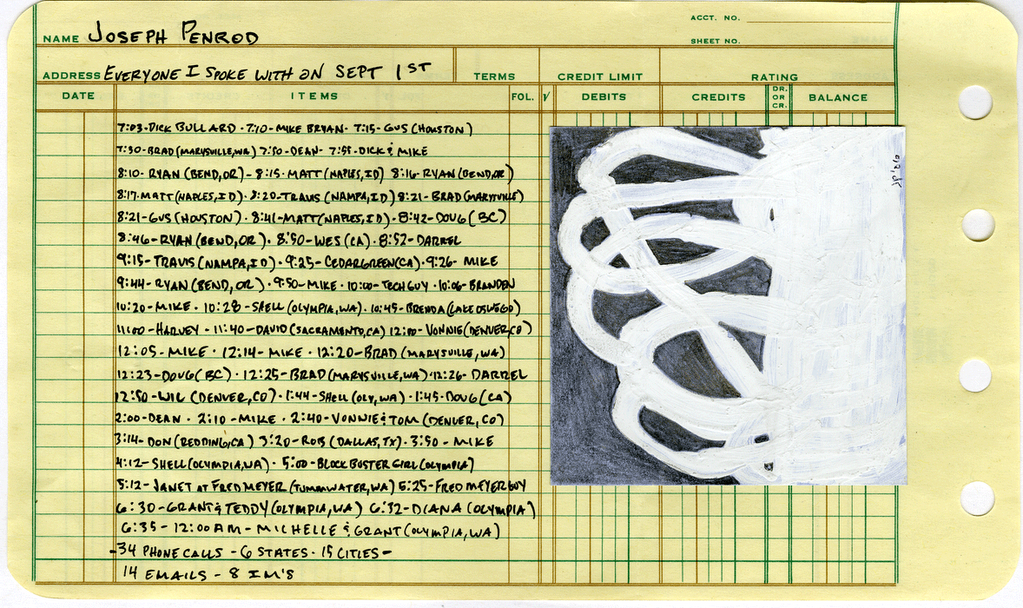 ACCT. NO.
NAME JOSEPH PENROD
SHEET NO.
ADDRESS EVERYONE I SPOKE WITH ON SEPT 1ST TERMS CREDIT LIMIT RATING
DATE ITEMS FOL. √ DEBITS CREDITS DR. OR CR. BALANCE
7:03-DICK BULLARD · 7:10-MIKE BRYAN · 7:15-GUS (HOUSTON)
7:30-BRAD (MARYSVILLE, WA) 7:50-DEAN · 7:55-DICK & MIKE
8:10-RYAN (BEND, OR) - 8:15-MATT (NAPLES, ID) 8:16-RYAN (BEND, OR)
8:17-MATT (NAPLES, ID) · 8:20-TRAVIS (NAMPA, ID) 8:21-BRAD (MARYSVILLE)
8:21-GUS (HOUSTON) · 8:41-MATT (NAPLES, ID) · 8:42-DOUG (BC)
8:46-RYAN (BEND, OR) · 8:50-WES (CA) · 8:52-DARREL
9:15-TRAVIS (NAMPA, ID) · 9:25-CEDARGREEN (CA) · 9:26-MIKE
9:44-RYAN (BEND, OR) · 9:50-MIKE · 10:00-TECH GUY · 10:06-BRANDEN
10:20-MIKE · 10:28-SHELL (OLYMPIA, WA) · 10:45-BRENDA (LAKE OSWEGO)
11:00-HARVEY · 11:40-DAVID (SACRAMENTO, CA) 12:00-VONNIE (DENVER, CO)
12:05-MIKE · 12:14-MIKE · 12:20-BRAD (MARYSVILLE, WA)
12:23-DOUG (BC) · 12:25-BRAD (MARYSVILLE, WA) · 12:26-DARREL
12:50-WIL (DENVER, CO) · 1:44-SHELL (OLY, WA) · 1:45-DOUG (CA)
2:00-DEAN · 2:10-MIKE · 2:40-VONNIE & TOM (DENVER, CO)
3:14-DON (REDDING, CA) 3:20-ROB (DALLAS, TX) · 3:50-MIKE
4:12-SHELL (OLYMPIA, WA) · 5:00-BLOCKBUSTER GIRL (OLYMPIA)
5:12-JANET AT FRED MEYER (TUMWATER, WA) 5:25-FRED MEYER GUY
6:30-GRANT & TEDDY (OLYMPIA, WA) 6:32-DIANA (OLYMPIA)
6:35-12:00 AM-MICHELLE & GRANT (OLYMPIA, WA)
-34 PHONE CALLS - 6 STATES · 15 CITIES-
14 EMAILS - 8 IM'S